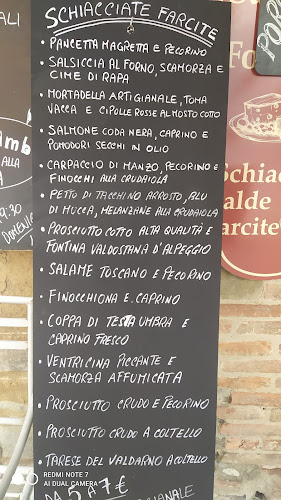 SCHIACCIATE FARCITE
• PANCETTA MAGRETTA E PECORINO
• SALSICCIA AL FORNO, SCAMORZA E
CIME DI RAPA
• MORTADELLA ARTIGIANALE, TOMA
VACCA E CIPOLLE ROSSE AL MOSTO COTTO
• SALMONE CODA NERA, CAPRINO E
POMODORI SECCHI IN OLIO
• CARPACCIO DI MANZO, PECORINO E
FINOCCHI ALLA CRUDAIOLA
• PETTO DI TACCHINO ARROSTO, BLU
DI MUCCA, MELANZANE ALLA CRUDAIOLA
• PROSCIUTTO COTTO ALTA QUALITÀ E
FONTINA VALDOSTANA D'ALPEGGIO
• SALAME TOSCANO E PECORINO
• FINOCCHIONA E CAPRINO
• COPPA DI TESTA UMBRA E
CAPRINO FRESCO
• VENTRICINA PICCANTE E
SCAMORZA AFFUMICATA
• PROSCIUTTO CRUDO E PECORINO
• PROSCIUTTO CRUDO A COLTELLO
• TARESE DEL VALDARNO A COLTELLO
DA 5 A 7 €
ALI
amb
ALLA
A
9:30
DOMENICA
Fo
POR
Schiac
alde
arcite
REDMI NOTE 7
AI DUAL CAMERA